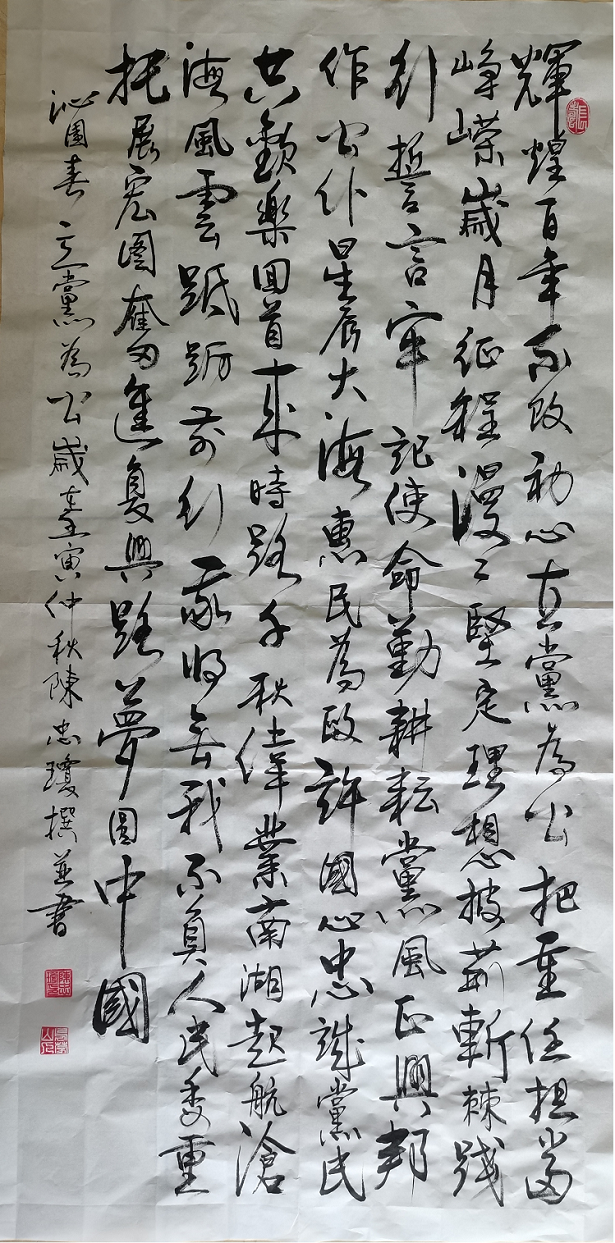 輝煌百年不改初心立黨為公把重任担當
崢嶸歲月征程漫々堅定理想披荊斬棘踐
行誓言牢記使命勤耕耘黨風正興邦
作公仆星辰大海惠民為政許國心忠誠黨民
共歡樂回首來時路千秋偉業南湖起航滄
海風雲砥砺前行我將無我不負人民委重
托展宏圖奮勇進復興路夢圓中國
沁園春立黨為公歲在壬寅仲秋陳忠瓊撰並書